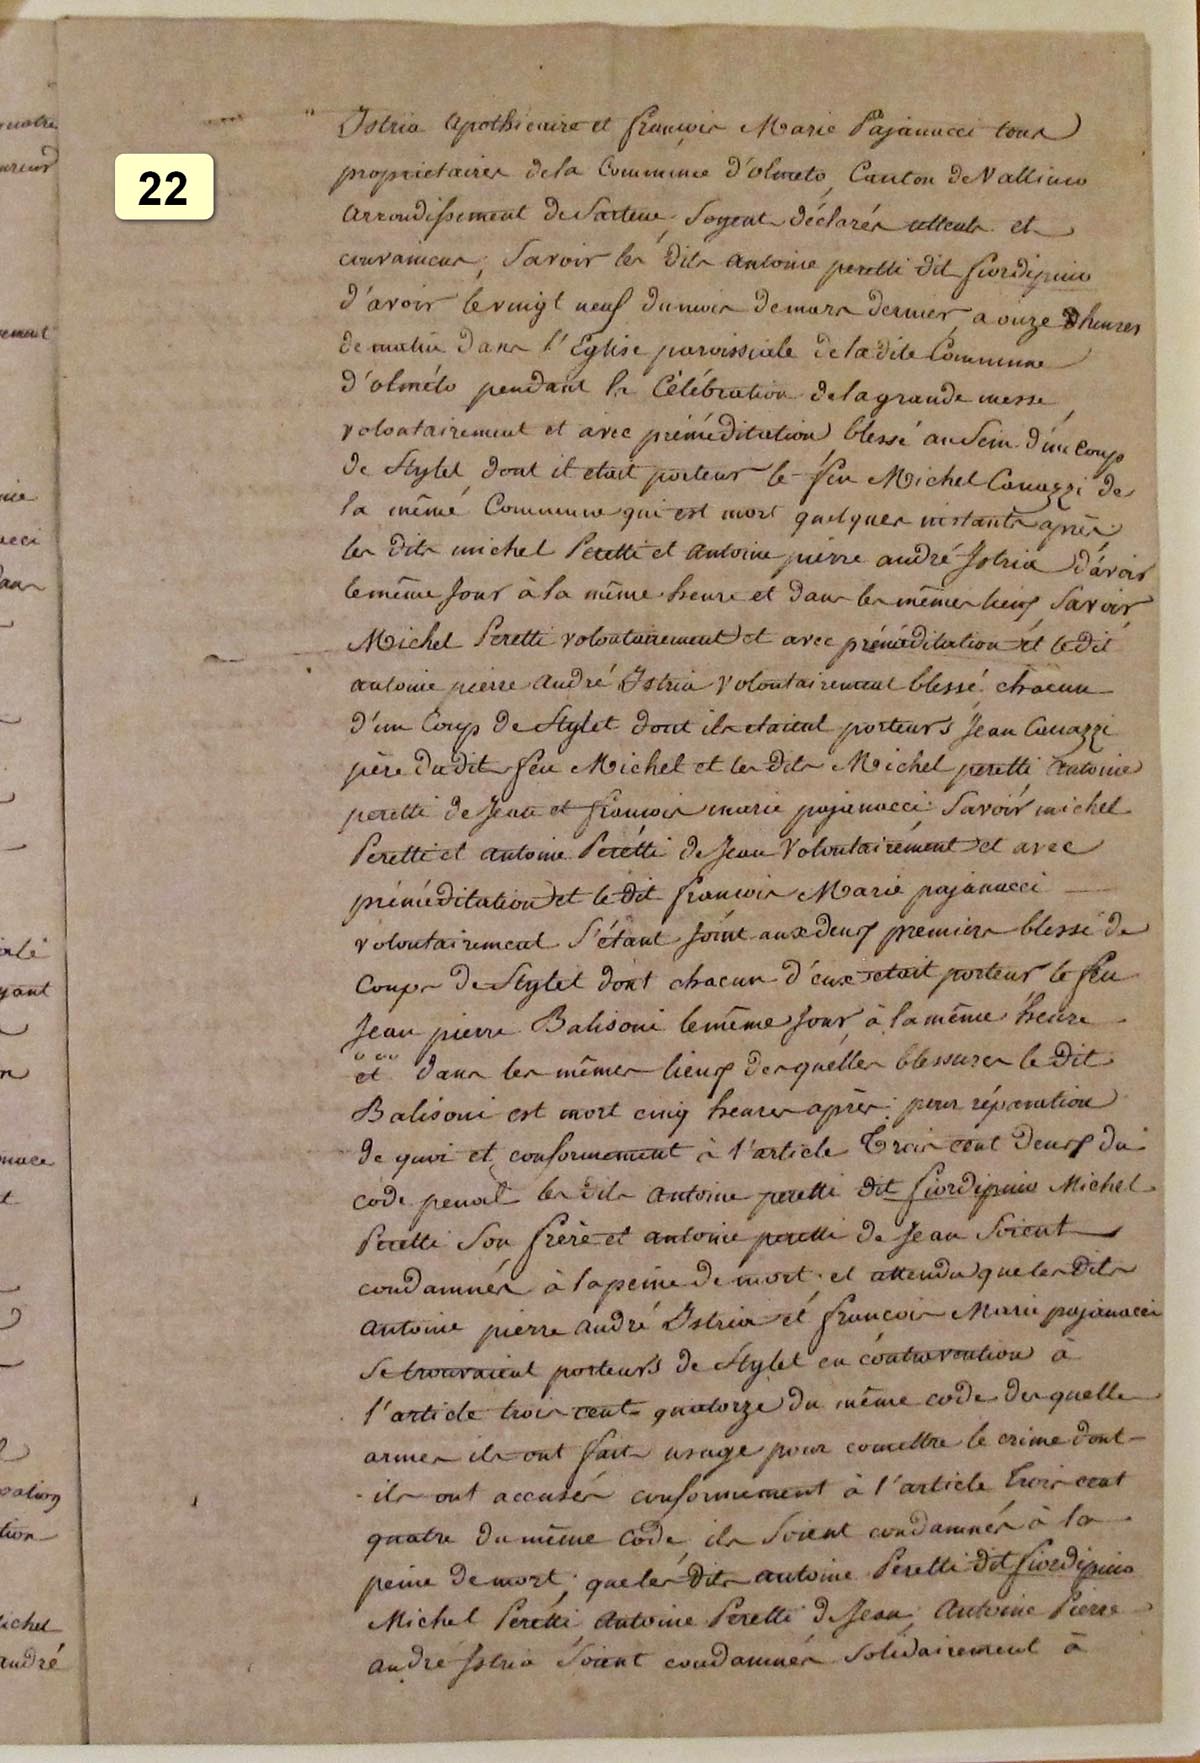 22
Istria apothicaire et françois Marie Pajanacci tous
proprietaires de la Commune d'olmeto, Canton de Vallinco
arrondissement de Sartene, Soyent déclarés attents et
convaincus, Savoir les dits antoine peretti dit fiordispino
d'avoir le vingt neuf du mois de mars dernier, a onze heures
de matin dans l'Eglise paroissiale de la dite Commune
d'olméto pendant la Célébration de la grande messe,
volontairement et avec préméditation blessé au Sein d'un coup
de Stylet dont il etait porteur le feu Michel Canazzi de
la même Commune qui est mort quelques instants après;
les dits michel Peretti et antoine pierre andré Istria d'avoir
le même Jour à la même heure et dans les mêmes lieux Savoir
Michel Peretti volontairement et avec préméditation et le dit
antoine pierre andré Istria volontairement blessé chacun
d'un Coup de Stylet dont ils etaient porteurs Jean Canazzi
père du dit feu Michel et les dits Michel peretti antoine
peretti de Jean et françois marie pajanacci Savoir michel
Peretti et antoine Peretti de Jean Volontairément et avec
préméditation et le dit françois Marie pajanacci
volontairement S'étant Joint aux deux premiers blessé de
Coups de Stylet dont chacun d'eux etait porteur le feu
Jean pierre Balisoni le même Jour, à la même heure
et dans les mêmes lieux desquélles blessures le dit
Balisoni est mort cinq heures après; pour réparation
de quoi et conformement à l'article Trois cent deux du
code penal les dits antoine peretti dit fiordispino Michel
Peretti Son frère et antoine peretti de Jean Soient
condamnés à la peine de mort; et attendu que les dits
antoine pierre andré Istria et françois Marie pajanacci
Se trouvaient porteurs de Stylet en contravention à
l'article trois cent quatorze du même code desquelle
armes ils ont fait usage pour comettre le crime dont
ils ont accusés conformement à l'article Trois cent
quatre du même Code, ils Soient condamnés à la
peine de mort; que les dits antoine Peretti dit fiordispino
Michel Perétti, antoine Peretti de Jean, Antoine Pierre
andré Istria Soient condamnés solidairement à